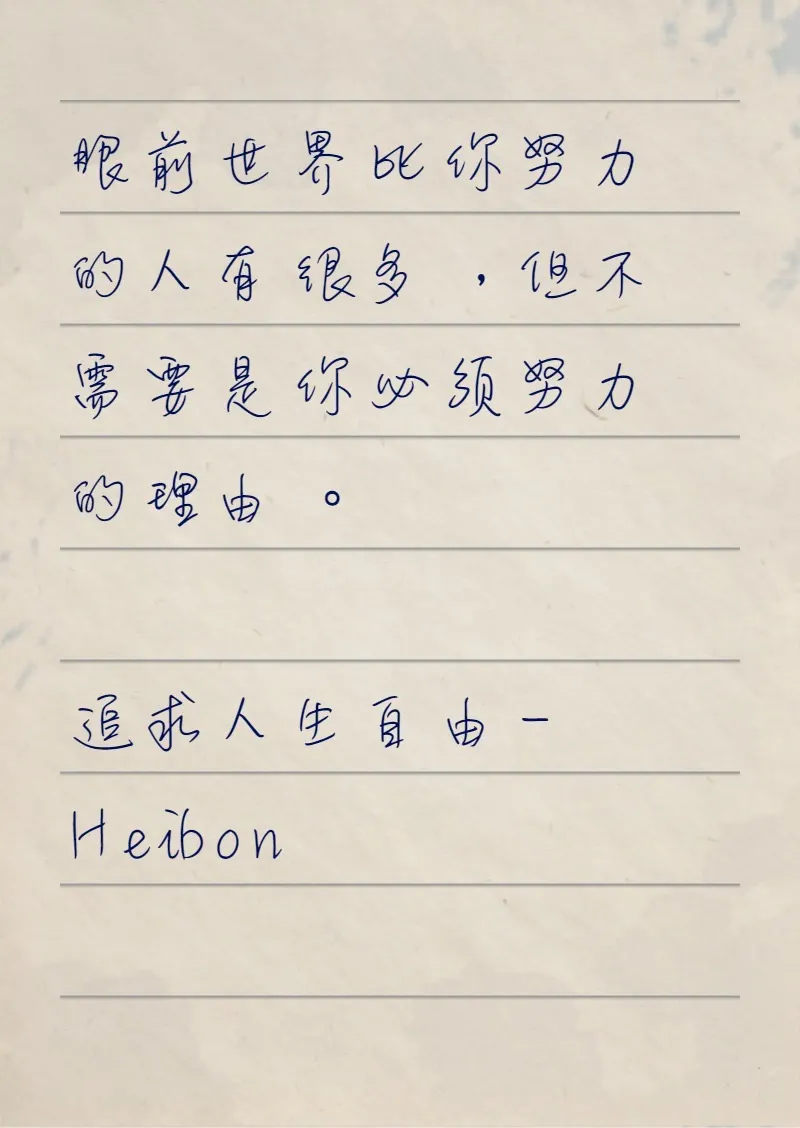 眼前世界比你努力
的人有很多，但不
需要是你必须努力
的理由。
追求人生自由－
Heibon